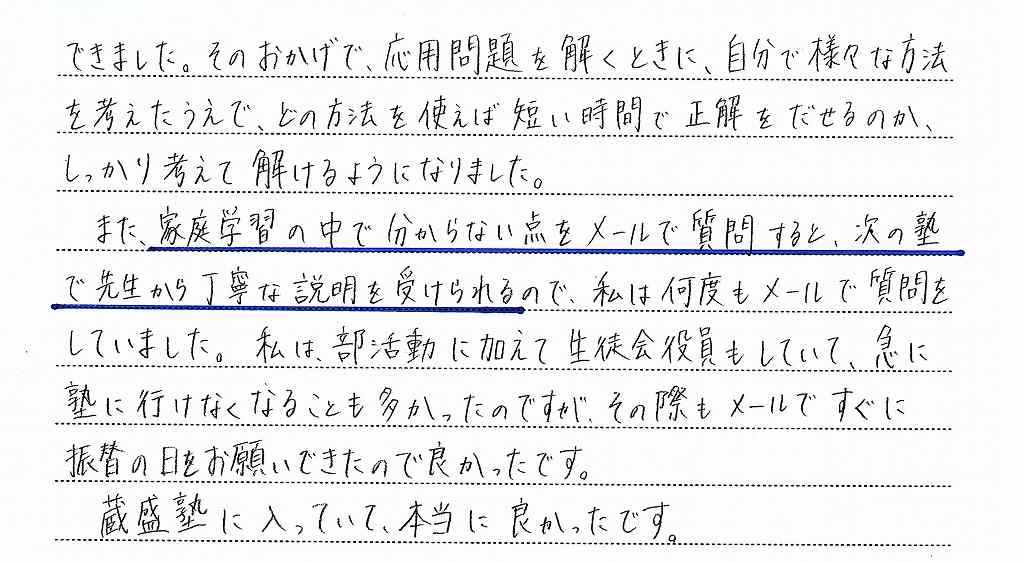 できました。そのおかげで、応用問題を解くときに、自分で様々な方法
を考えたうえで、どの方法を使えば短い時間で正解をだせるのか、
しっかり考えて解けるようになりました。
また、家庭学習の中で分からない点をメールで質問すると、次の塾
で先生から丁寧な説明を受けられるので、私は何度もメールで質問を
していました。私は、部活動に加えて生徒会役員もしていて、急に
塾に行けなくなることも多かったのですが、その際もメールですぐに
振替の日をお願いできたので良かったです。
蔵盛塾に入っていて、本当に良かったです。